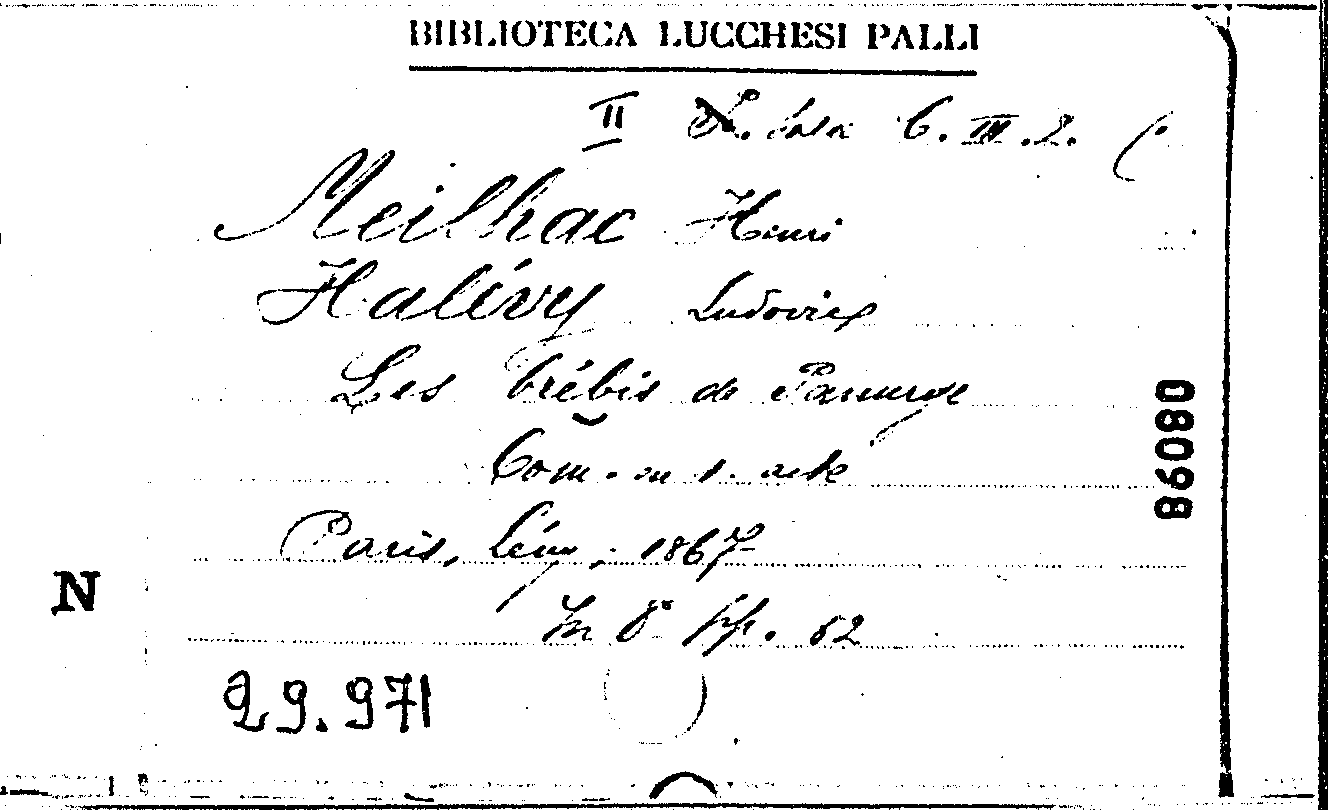 BIBLIOTECA LUCCHESI PALLI
II Sala C. III. 2. (
Meilhac Henri
Halévy Ludovic
Les brébis de Panurge
Com. en 1. acte
Paris, Lévy, 1867
In 8° pp. 52
N
29.971
86080